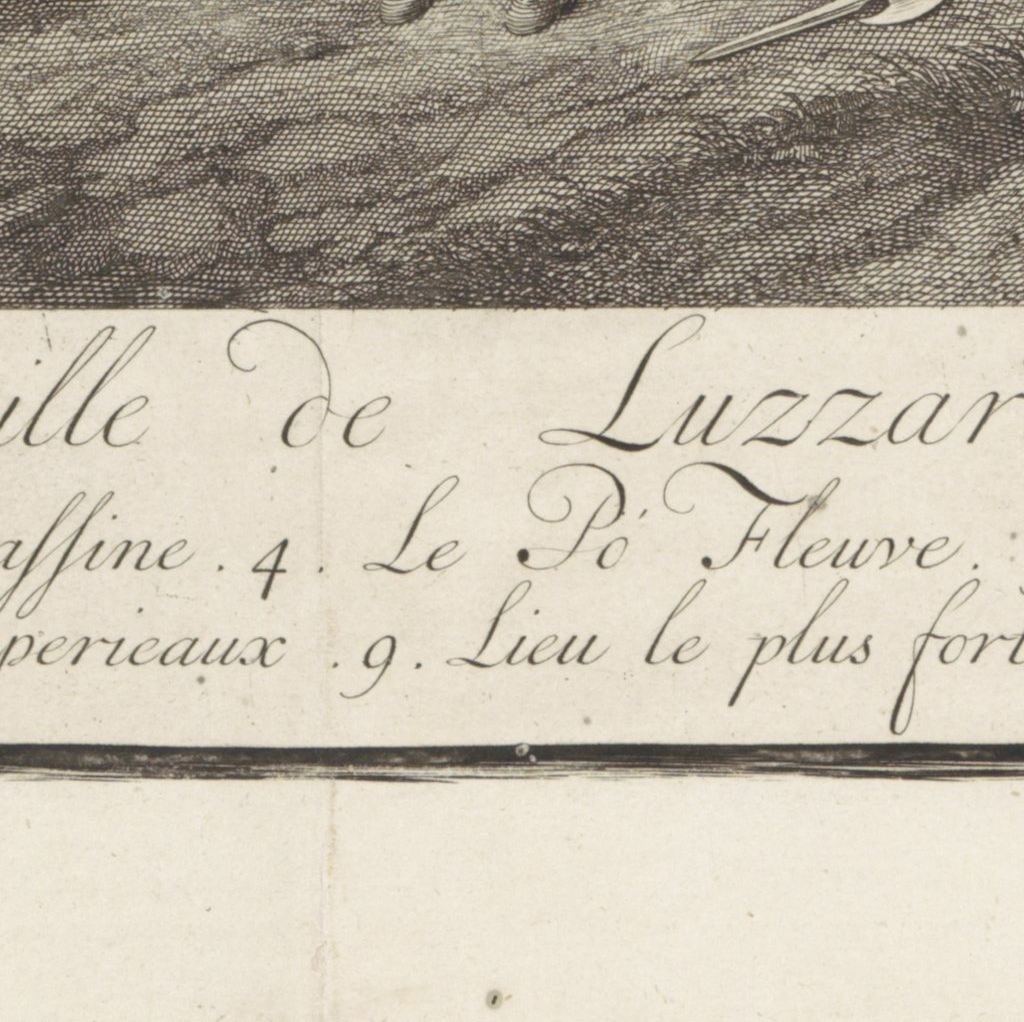 ille de Luzzar
assine . 4 . Le Pó Fleuve .
perieaux . 9 . Lieu le plus fort